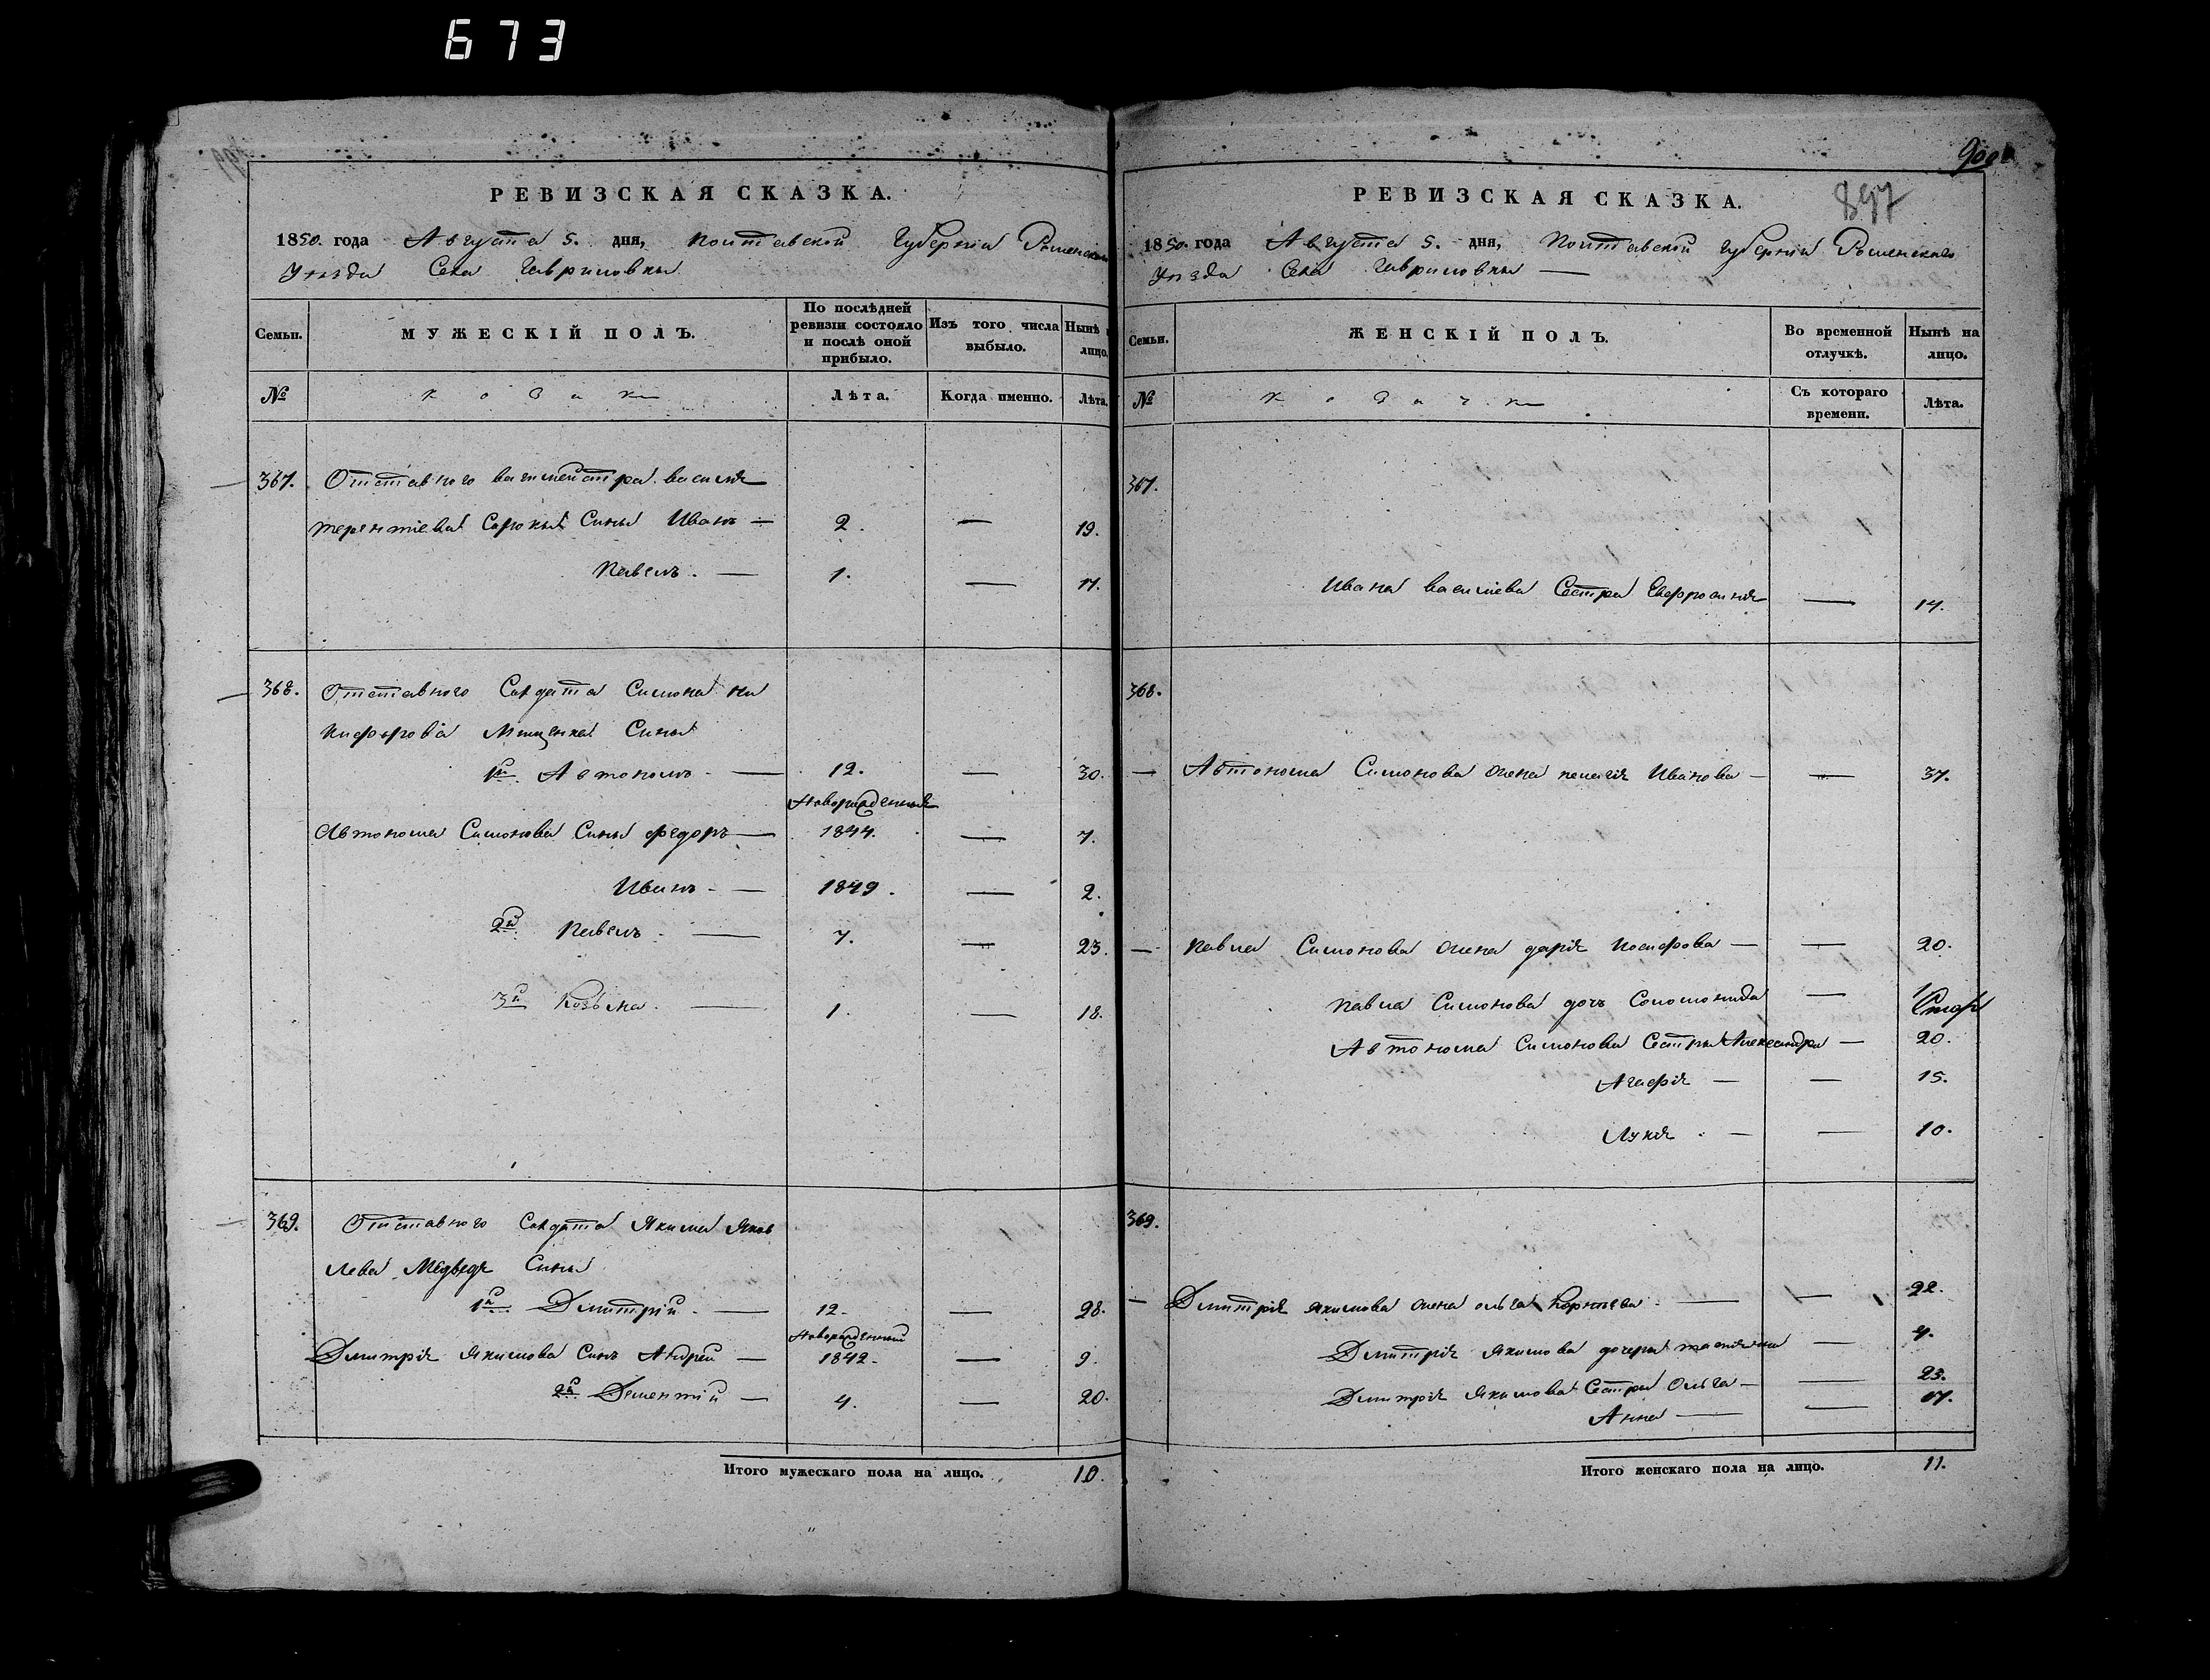 673
РЕВИЗСКАЯ СКАЗКА.
1850. года Августа 5. дня, Полтавской Губерніи Роменскаго
Уѣзда Села Гавриловки
Семьи.
МУЖЕСКІЙ ПОЛЪ.
По послѣдней ревизіи состояло и послѣ оной прибыло.
Изъ того числа выбыло.
Нынѣ лицо.
№
козаки
Лѣта.
Когда именно.
Лѣта.
367. Отставного вахмейстра василія
терентіева Сороки Сины Иванъ — 2. — 19.
Павелъ. — 1. — 17.
368. Отставного Солдата Симона Ни
кифорова Мищенка Сины
1й Автономъ. — 12. — 30.
Новорожденныя
Автонома Симонова Сины федоръ — 1844. — 7.
Иванъ — 1849. — 2.
2й Павелъ. — 7. — 23.
3й Козьма. — 1. — 18.
369. Отставного Солдата Якима Яков
лева Медведя Сины
1й Дмитрій. — 12. — 28.
Новорожденный
Дмитрія Якимова Синъ Андрей — 1842. — 9.
2й Дементій — 4. — 20.
Итого мужескаго пола на лицо. 10.
900
897
РЕВИЗСКАЯ СКАЗКА.
1850. года Августа 5. дня, Полтавской Губерніи Роменскаго
Уѣзда Села Гавриловки —
Семьи.
ЖЕНСКІЙ ПОЛЪ.
Во временной отлучкѣ.
Нынѣ на лицо.
№
козачки
Съ котораго времени.
Лѣта.
367.
Ивана василіева Сестра Евфросинія — 14.
368.
— Автонома Симонова жена пелагія Иванова — — 37.
— Павла Симонова жена дарія Иосифова — — 20.
павла Симонова дочь Соломонида —
Автонома Симонова Сестры Александра — 20.
Агафія — — 15.
Лукія. — — 10.
369.
— Дмитрія Якимова жена ольга Корнѣева. — — 22.
Дмитрія Якимова дочери татіяна — 4.
Дмитрія Якимова Сестры Ольга — — 23.
Анна — — 17.
Итого женскаго пола на лицо. 11.